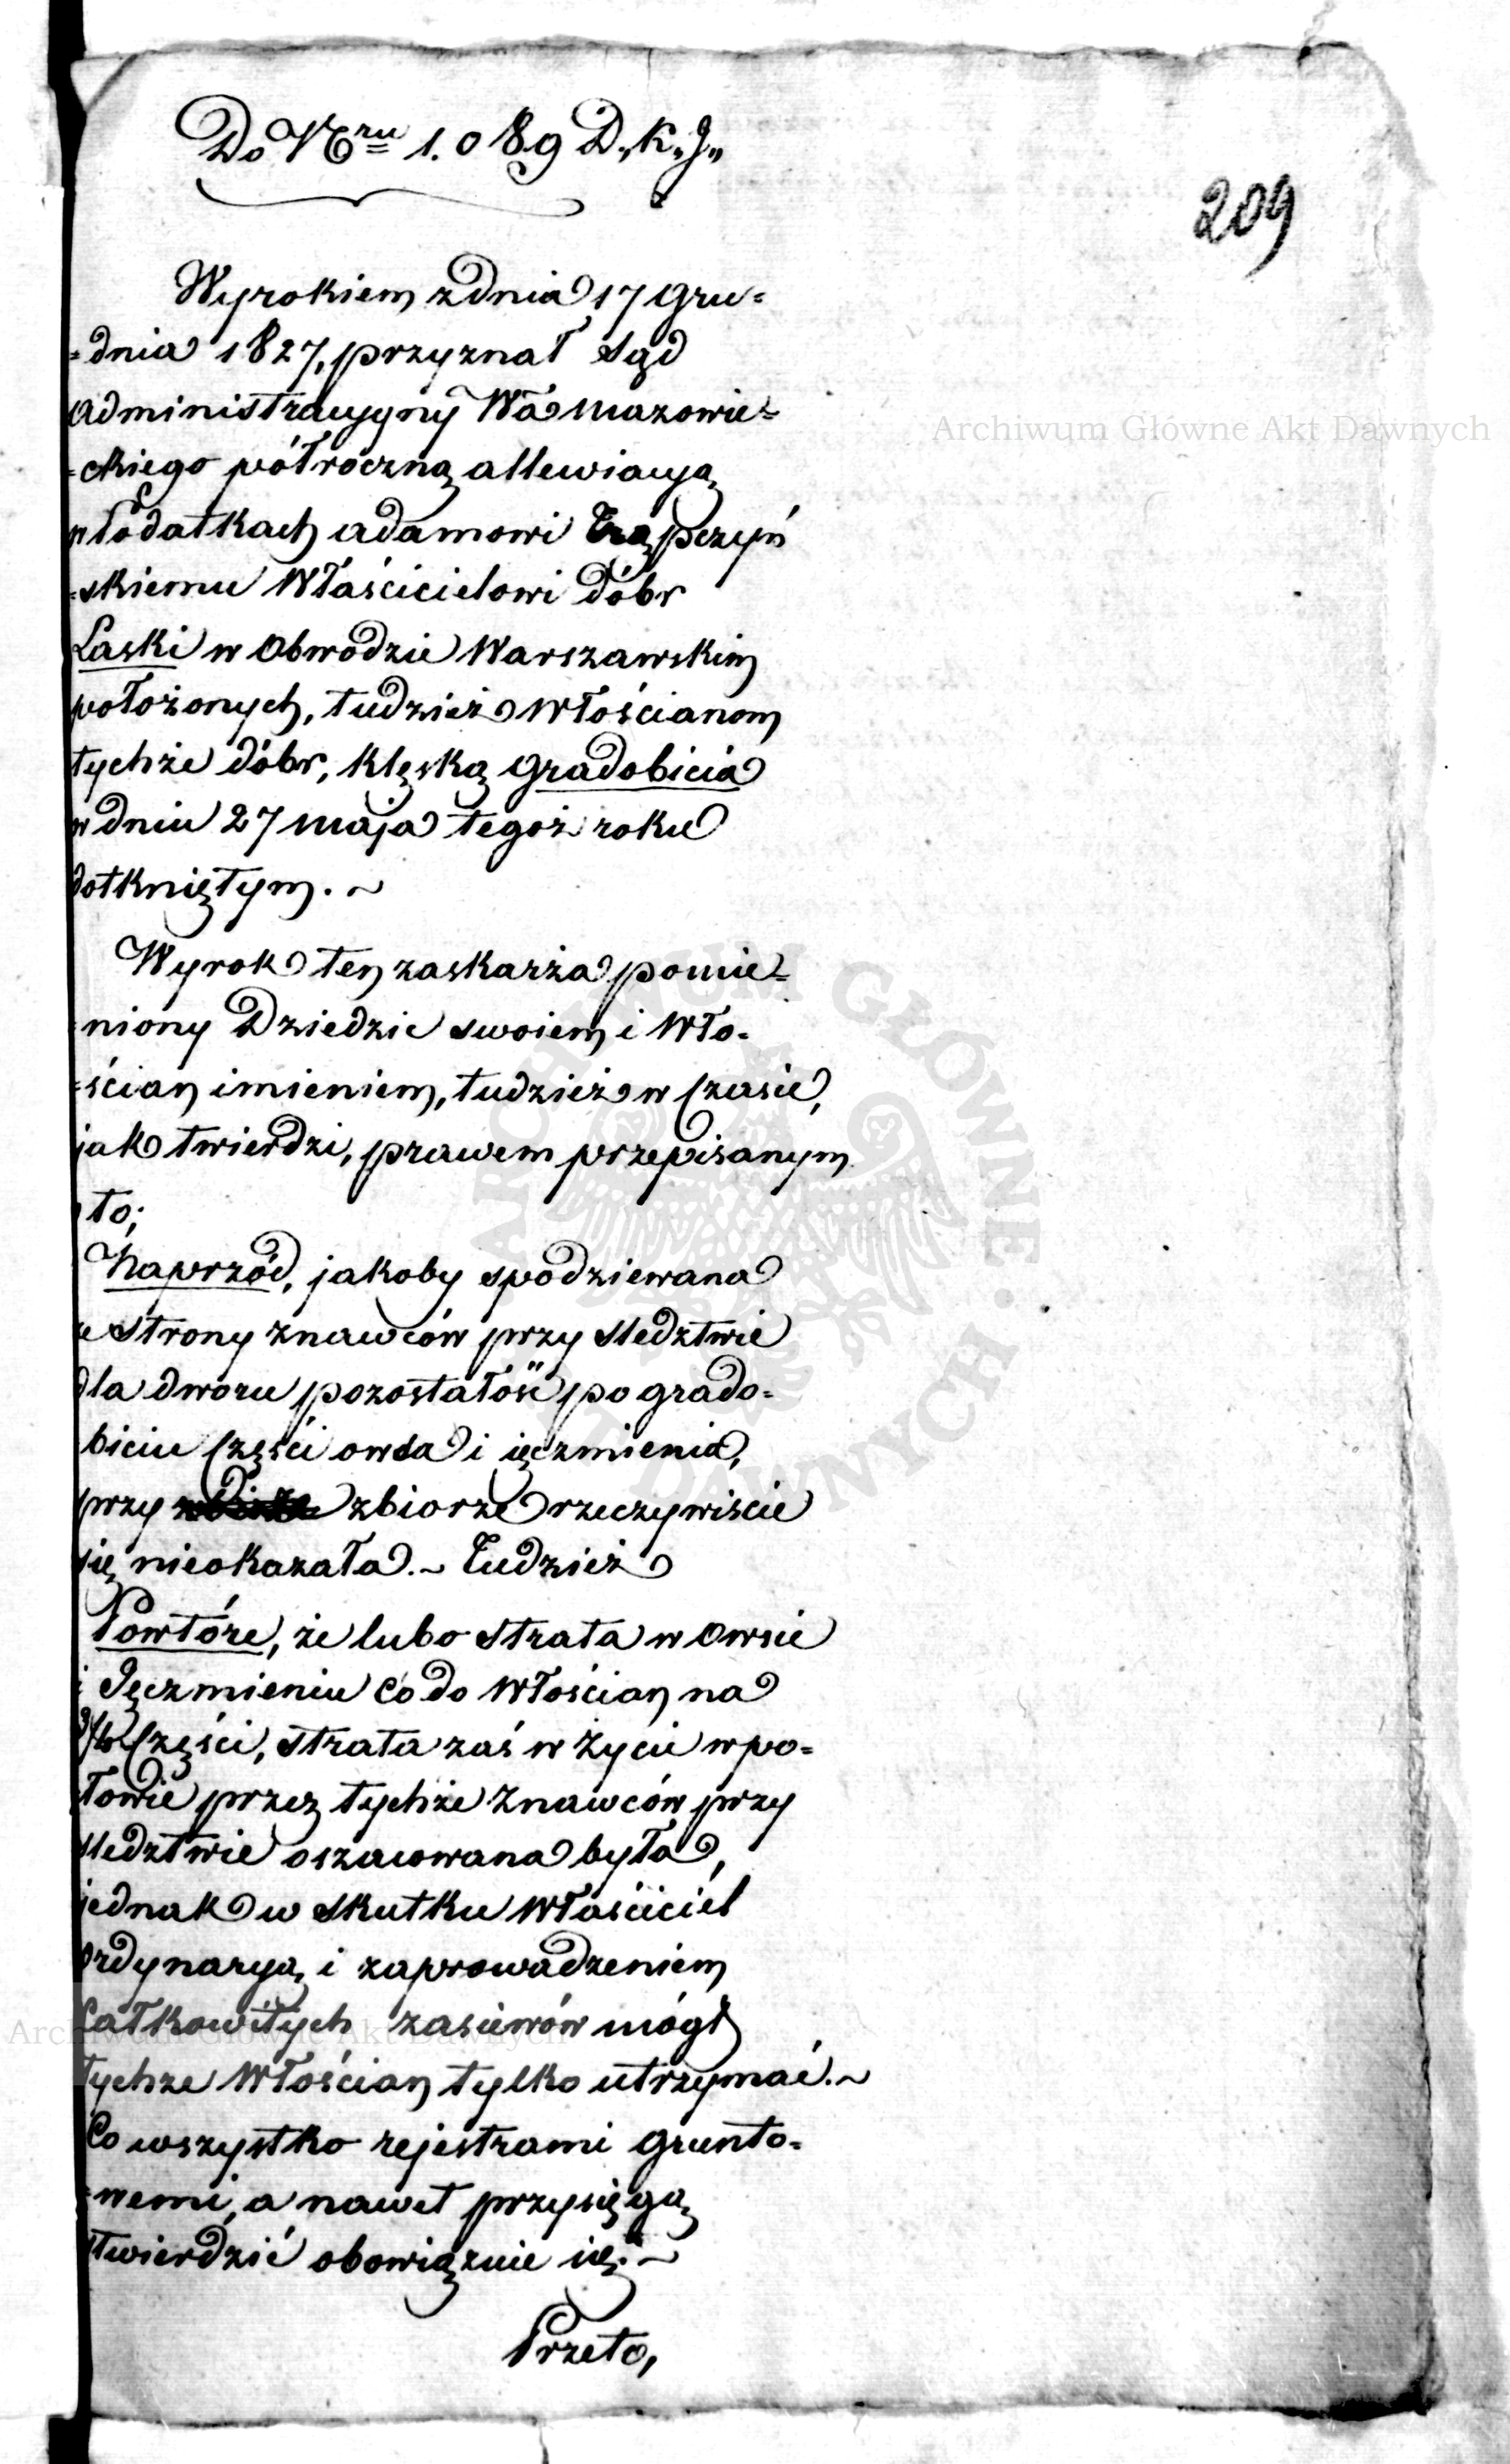 Do Nru 1.089 D. K. J.
209
Wyrokiem z dnia 17 Gru=
=dnia 1827, przyznał Sąd
Administracyjny Wa Mazowie=
=ckiego półroczną allewiacyą
w Podatkach Adamowi Trąpczyń
=skiemu Właścicielowi Dóbr
Laski w Obwodzie Warszawskim
położonych, tudzież Włościanom
tychże dóbr, klęską gradobicia
w dniu 27 Maja tegoż roku
dotkniętym. ~
Wyrok ten zaskarża pomie=
niony Dziedzic swoiem i Wło=
=ścian imieniem, tudzież w Czasie,
jak twierdzi, prawem przepisanym
to;
Naprzód, jakoby spodziewana
ze strony znawców przy sledztwie
dla dworu pozostałość po grado=
biciu Części owsa i ięczmienia,
przy zbiorze rzeczywiscie
się nieokazała. ~ Tudzież
Powtóre, że lubo strata w Owsie
i Jęczmieniu co do Włościan na
3/4 Części, strata zaś w Życie w po=
łowie przez tychże Znawców przy
sledztwie oszacowana była,
jednak w skutku Właściciel
Ordynaryą i zaprowadzeniem
Całkowitych zasiewów mógł
tychże Włościan tylko utrzymać. ~
Co wszystko rejestrami grunto=
=wemi, a nawet przysięgą
stwierdzić obowiązuie się. ~
Przeto,
Archiwum Główne Akt Dawnych
ARCHIWUM GŁÓWNE AKT DAWNYCH
Archiwum Główne Akt Dawnych